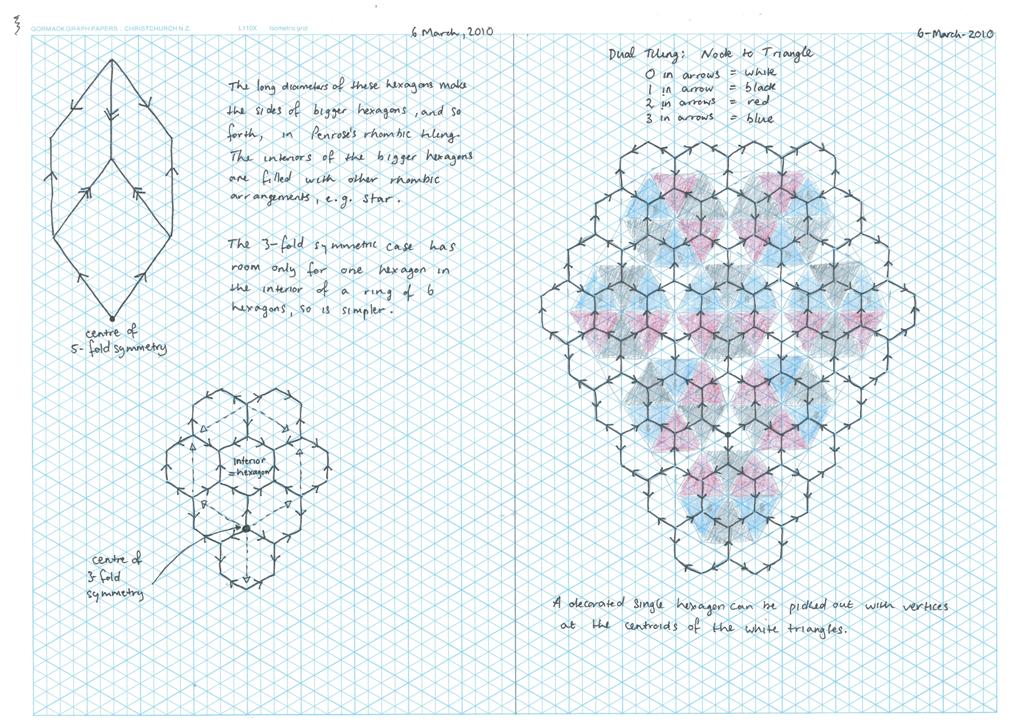 GORMACK GRAPH PAPERS . CHRISTCHURCH N.Z.
L110X Isometric grid
6 March, 2010
The long diameters of these hexagons make
the sides of bigger hexagons, and so
forth, in Penrose's rhombic tiling.
The interiors of the bigger hexagons
are filled with other rhombic
arrangements, e.g. star.
The 3-fold symmetric case has
room only for one hexagon in
the interior of a ring of 6
hexagons, so is simpler.
centre of
5-fold symmetry
Interior
=hexagon
centre of
3-fold
symmetry
6-March-2010
Dual Tiling: Node to Triangle
0 in arrows = white
1 in arrow = black
2 in arrows = red
3 in arrows = blue
A decorated single hexagon can be picked out with vertices
at the centroids of the white triangles.